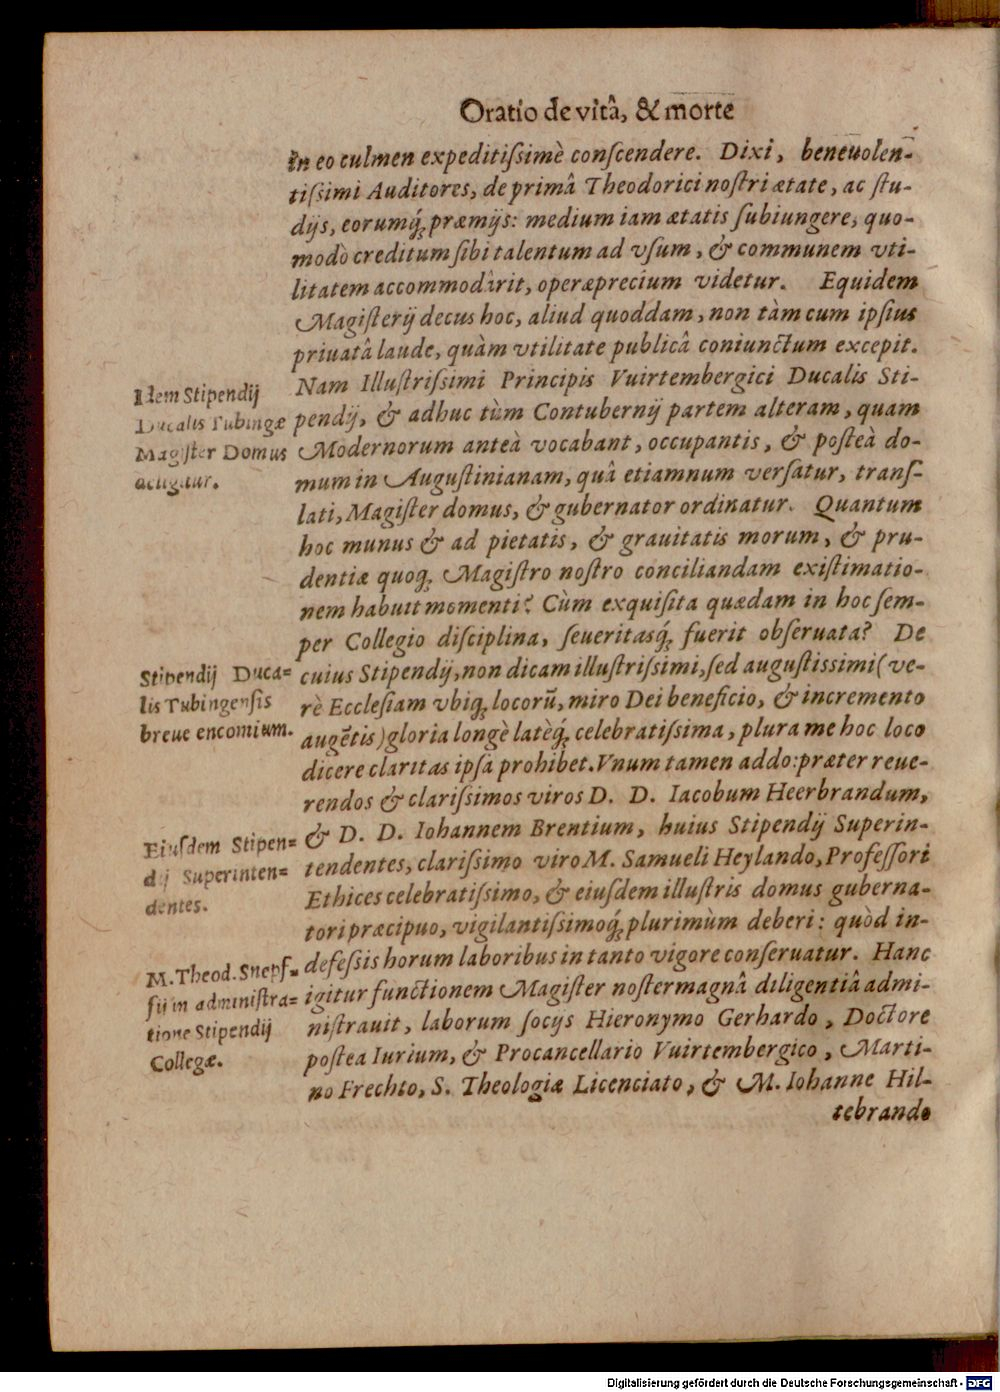 Oratio de vitâ, & morte
in eo culmen expeditiſsimè conſcendere. Dixi, beneuolen-
tiſsimi Auditores, de primâ Theodorici noſtri ætate, ac ſtu-
dijs, eorumq́; præmijs: medium iam ætatis ſubiungere, quo-
modò creditum ſibi talentum ad vſum, & communem vti-
litatem accommodârit, operæprecium videtur. Equidem
Magiſterij decus hoc, aliud quoddam, non tàm cum ipſius
priuatâ laude, quàm vtilitate publicâ coniunctum excepit.
Nam Illuſtriſsimi Principis Vuirtembergici Ducalis Sti-
pendij, & adhuc tùm Contubernij partem alteram, quam
Modernorum anteà vocabant, occupantis, & poſteà do-
mum in Auguſtinianam, quâ etiamnum verſatur, tranſ-
lati, Magiſter domus, & gubernator ordinatur. Quantum
hoc munus & ad pietatis, & grauitatis morum, & pru-
dentiæ quoq; Magiſtro noſtro conciliandam exiſtimatio-
nem habuit momenti? Cùm exquiſita quædam in hoc ſem-
per Collegio diſciplina, ſeueritasq́; fuerit obſeruata? De
cuius Stipendij, non dicam illuſtriſsimi, ſed auguſtissimi (ve-
rè Eccleſiam vbiq; locorū, miro Dei beneficio, & incremento
augētis) gloria longè latèq́; celebratiſsima, plura me hoc loco
dicere claritas ipſa prohibet. Vnum tamen addo: præter reue-
rendos & clariſsimos viros D. D. Iacobum Heerbrandum,
& D. D. Iohannem Brentium, huius Stipendij Superin-
tendentes, clariſsimo viro M. Samueli Heylando, Profeſſori
Ethices celebratiſsimo, & eiuſdem illuſtris domus guberna-
tori præcipuo, vigilantiſsimoq́; plurimùm deberi: quòd in-
defeſsis horum laboribus in tanto vigore conſeruatur. Hanc
igitur functionem Magiſter noſter magnâ diligentiâ admi-
niſtrauit, laborum ſocijs Hieronymo Gerhardo, Doctore
poſtea Iurium, & Procancellario Vuirtembergico, Marti-
no Frechto, S. Theologiæ Licenciato, & M. Iohanne Hil-
tebrando
Idem Stipendij
Ducalis Tubingæ
Magiſter Domus
deligitur.
Stipendij Duca-
lis Tubingenſis
breue encomium.
Eiuſdem Stipen-
dij Superinten-
dentes.
M. Theod. Snepf-
fij in adminiſtra-
tione Stipendij
Collegæ.
Digitalisierung gefördert durch die Deutsche Forschungsgemeinschaft - DFG